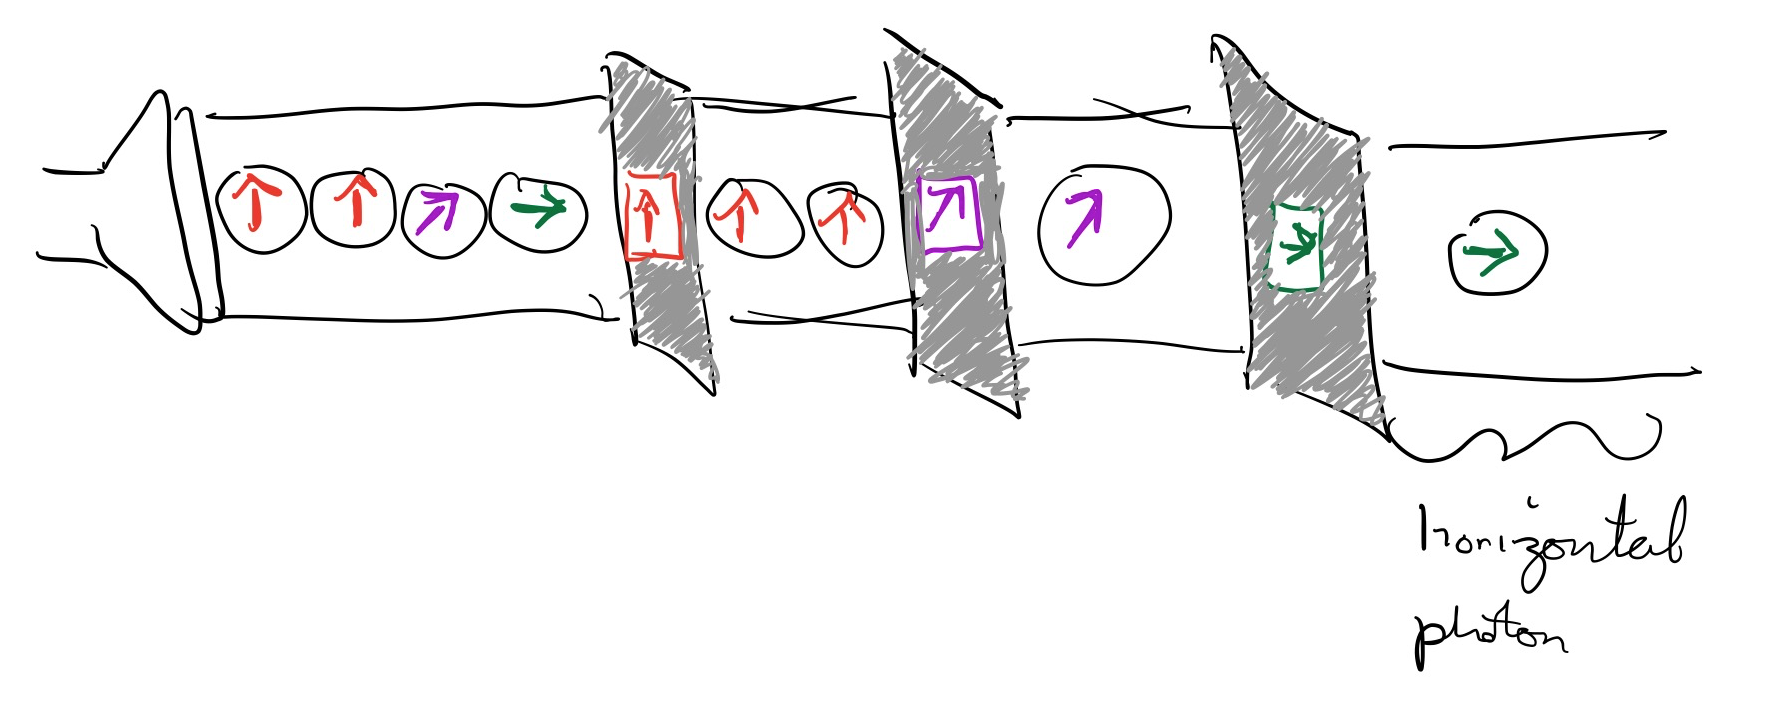 horizontal
photon